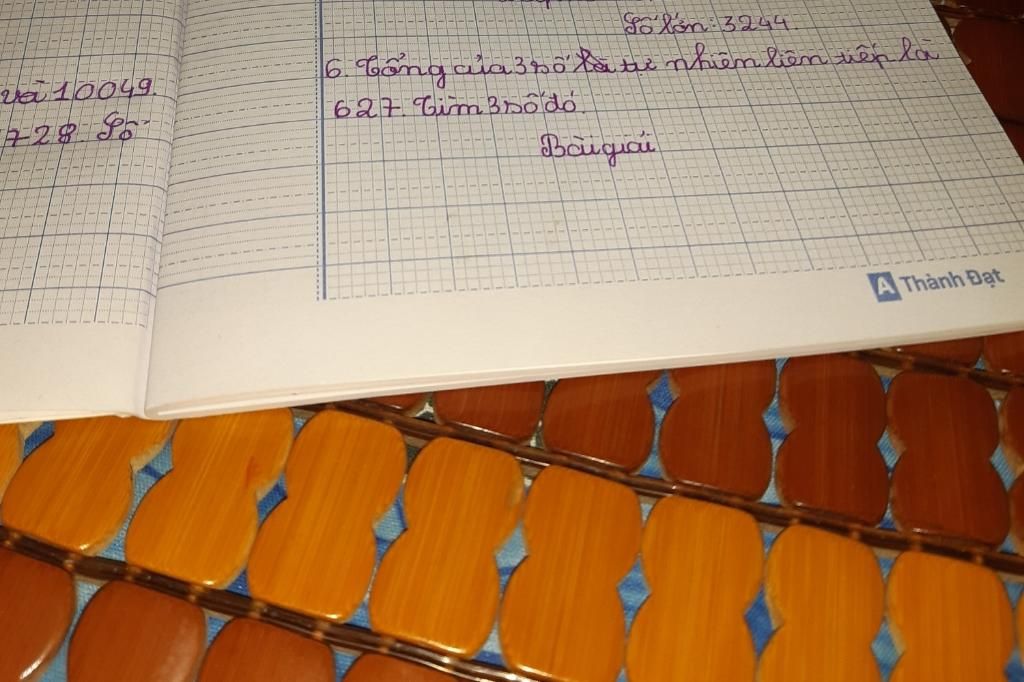 và 10049.
728. Số
Số lớn: 3244.
6. Tổng của 3 số tự nhiên liên tiếp là
627. Tìm 3 số đó.
Bài giải
A Thành Đạt